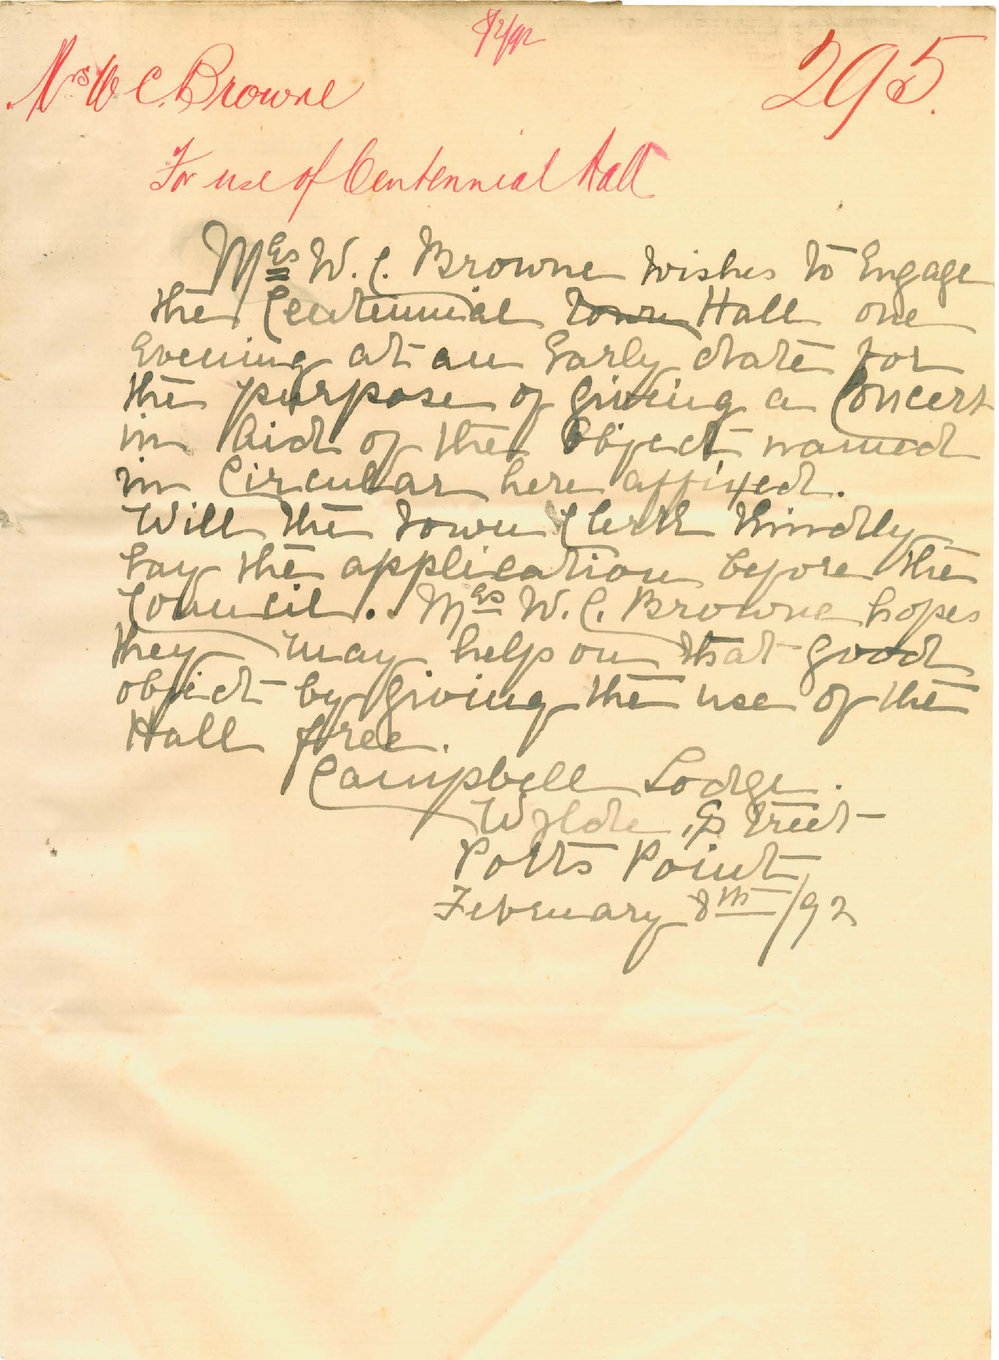 8/2/92
Mrs W C. Browne
295.
For use of Centennial Hall
Mrs W. C. Browne wishes to Engage
the Centennial Town Hall one
Evening at an Early date for
the purpose of giving a Concert
in Aid of the Object named
in Circular here affixed.
Will the Town Clerk Kindly
Lay the application before the
Council. Mrs W. C. Browne hopes
they may help on that good
object by giving the use of the
Hall free.
Campbell Lodge.
Wylde Street
Potts Point
February 8th/92